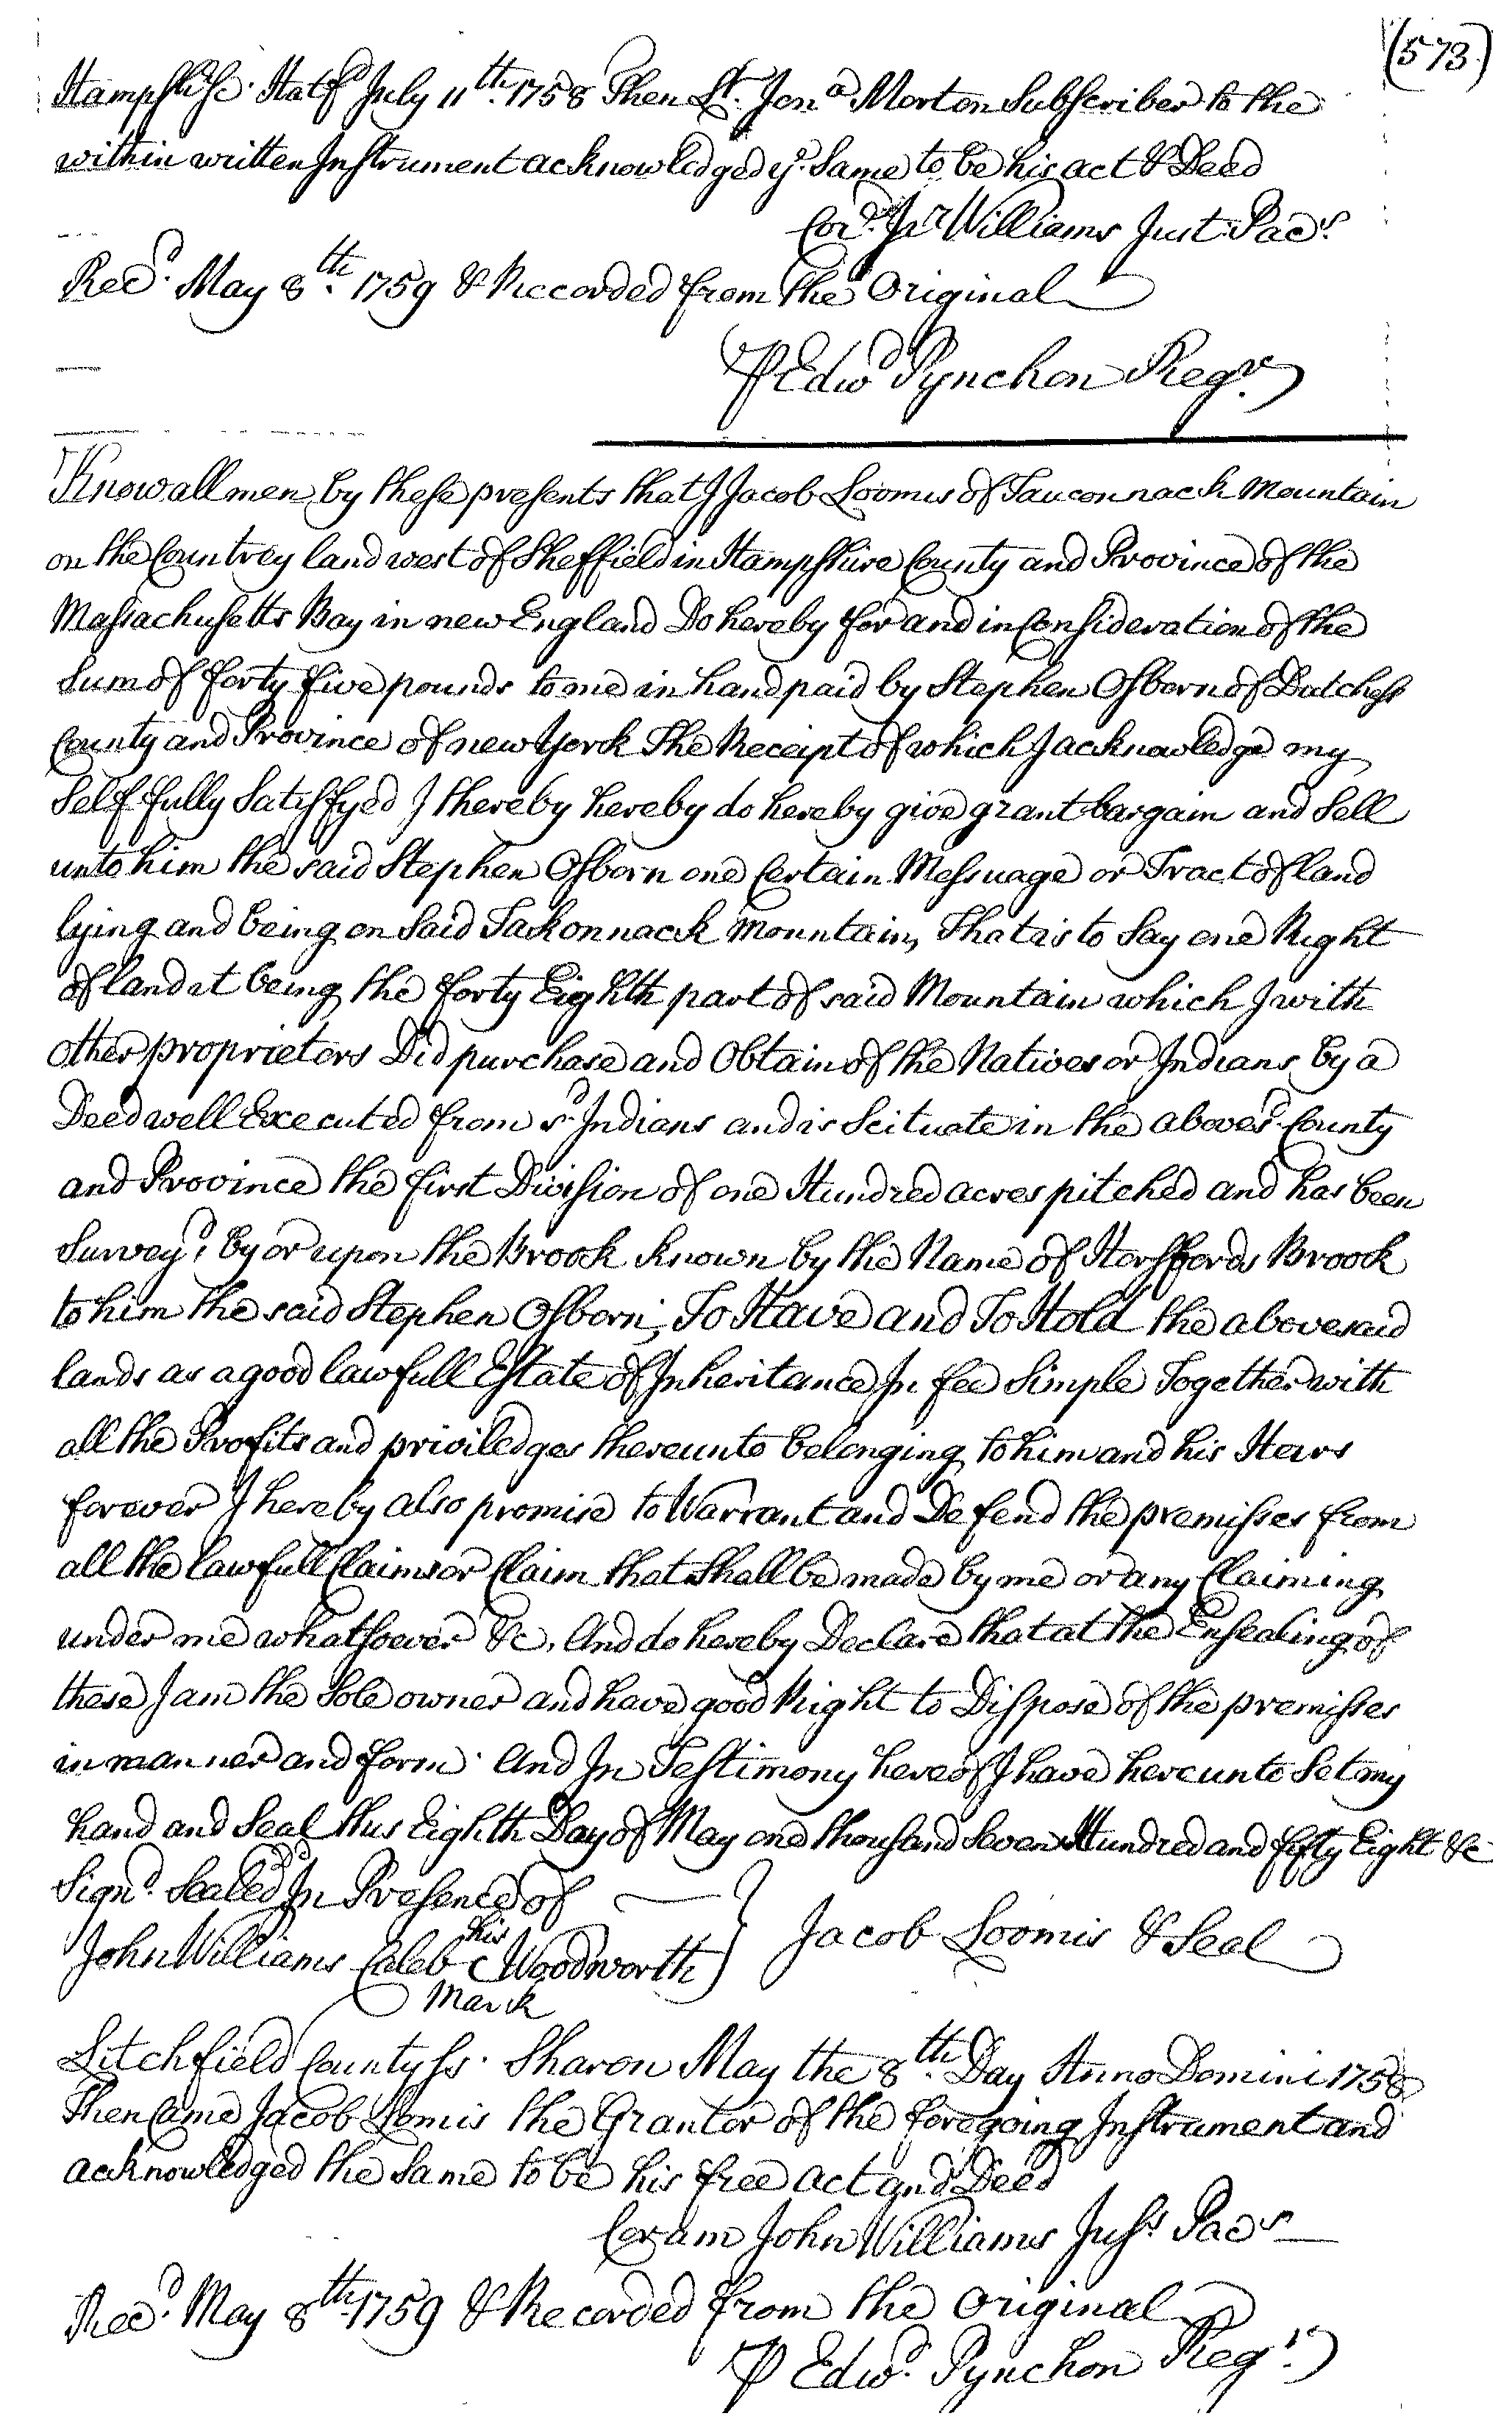 (573)
Hampshr. Ss. Hatfd July 11th. 1758 Then Lt. Jona Morton Subscriber to the
within written Instrument acknowledged ye. Same to be his act & Deed
Cord. Isr Williams Just Pacs.
Recd. May 8th. 1759 & Reccorded from the Original
P Edwd Pynchon Regr.
Know all men by these presents that I Jacob Loomis of Tauconnack Mountain
on the Countrey land west of Sheffield in Hampshire County and Province of the
Massachusetts Bay in new England Do hereby for and in Consideration of the
Sum of forty five pounds to me in hand paid by Stephen Osborn of Dutchess
County and Province of new York The Receipt of which I acknowledge my
Self fully Satisfyed I thereby hereby do hereby give grant bargain and Sell
unto him the said Stephen Osborn one Certain Messuage or Tract of land
lying and being on Said Takonnack Mountain, That is to Say one Right
of land it being the forty Eighth part of said Mountain which I with
other proprietors Did purchase and Obtain of the Natives or Indians by a
Deed well Executed from sd. Indians and is Scituate in the aboves.d County
and Province the first Division of one Hundred acres pitched and has been
Survey'd, by or upon the Brook known by the Name of Horsfords Broock
to him the said Stephen Osborn; To Have and To Hold the abovesaid
lands as a good lawfull Estate of Inheritance In fee Simple Together with
all the Profits and priviledges thereunto belonging to him and his Heirs
forever I hereby also promise to Warrant and Defend the premisses from
all the lawfull Claims or Claim that Shall be made by me or any Claiming
under me whatsoever &c. And do hereby Declare that at the Ensealing of
these I am the Sole owner and have good Right to Dispose of the premisses
in manner and form. And In Testimony hereof I have hereunto Set my
hand and Seal this Eighth Day of May one thousand Seven Hundred and fifty Eight &c
Signd. Sealed In Presence of
John Williams Caleb his C Mark Woodworth } Jacob Loomis & Seal
Litchfield County ss. Sharon May the 8th. Day Anno Domini 1758
Then Came Jacob Lomis the Grantor of the foregoing Instrument and
acknowledged the Same to be his free act and Deed
Coram John Williams Justs Pacs
Recd. May 8th 1759 & Recorded from the original
P Edwd. Pynchon Regr.